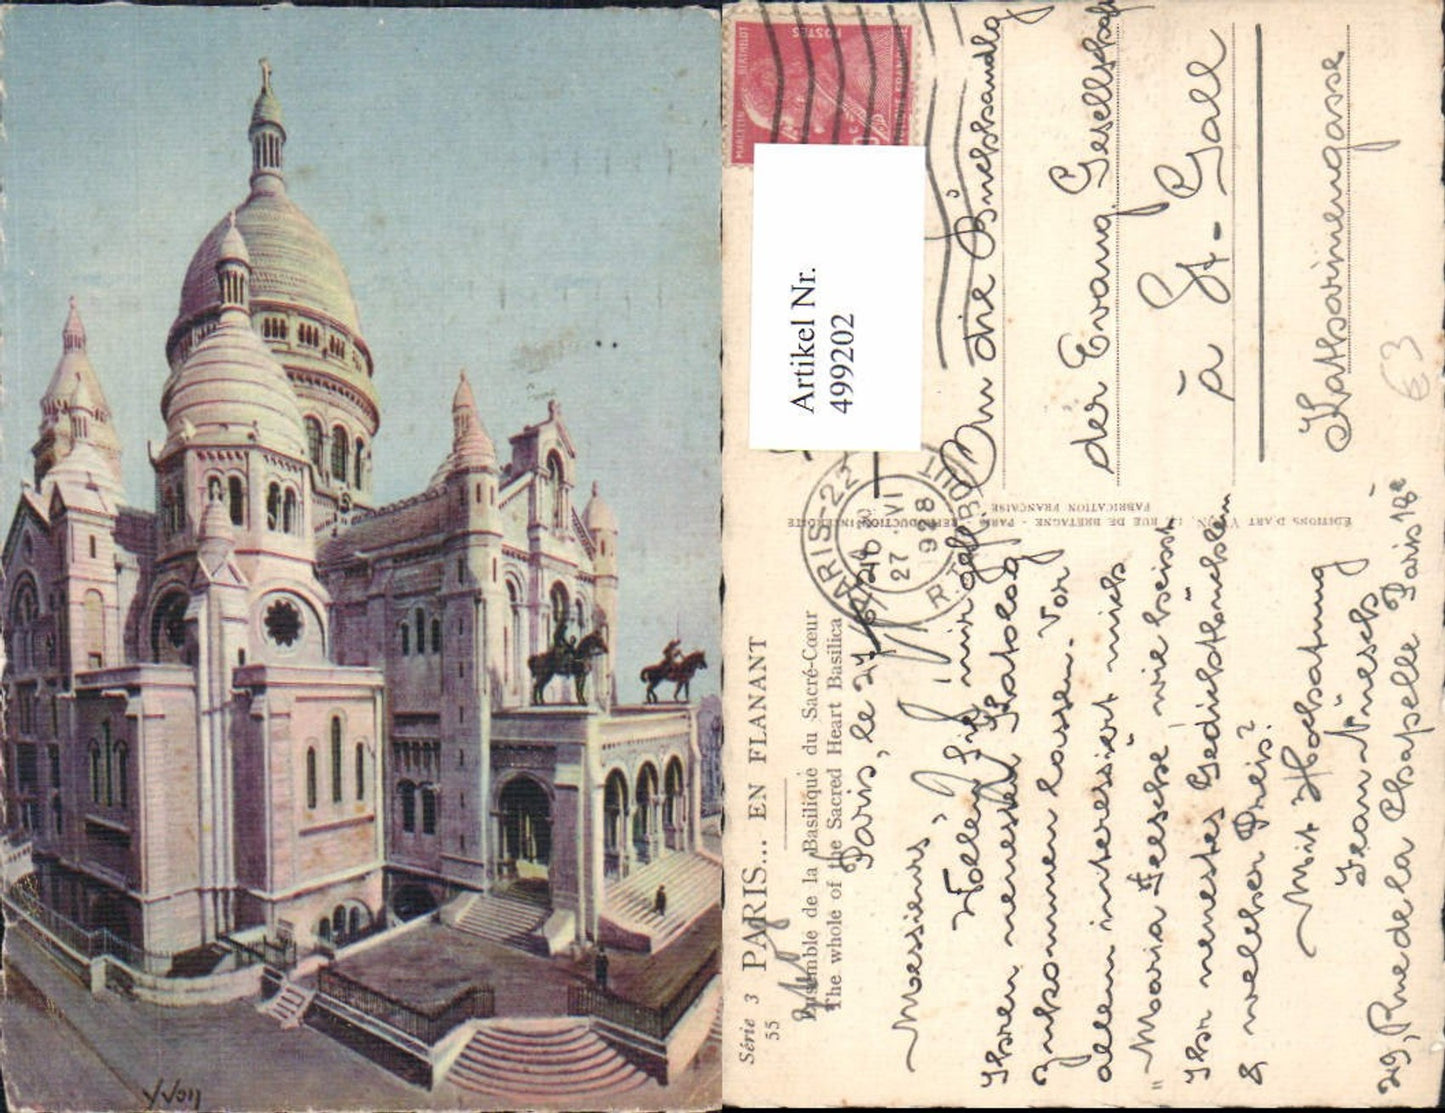 Yvon
MARCELIN BERTHELOT
POSTES
Artikel Nr.
499202
PARIS-22
27 VI
928
R. TAITBOUT
Série 3 PARIS... EN FLANANT
55
Ensemble de la Basilique du Sacré-Cœur
The whole of the Sacred Heart Basilica
ÉDITIONS D'ART YVON, 15, RUE DE BRETAGNE - PARIS - REPRODUCTION INTERDITE
FABRICATION FRANÇAISE
Paris, le 27
Messieurs,
Wollen Sie mir gefl.
Ihren neuesten Katalog
zukommen lassen. Vor
allem interessiert mich
"Maria Feesche" wie heisst
Ihr neuestes Gedichtbüchlein
& welcher Preis?
Mit Hochachtung
Jean Nüesch,
29, Rue de la Chapelle Paris 18e
An die Buchhandlg
der Evang. Gesellschaft
à St-Gall
Katharinengasse
€3